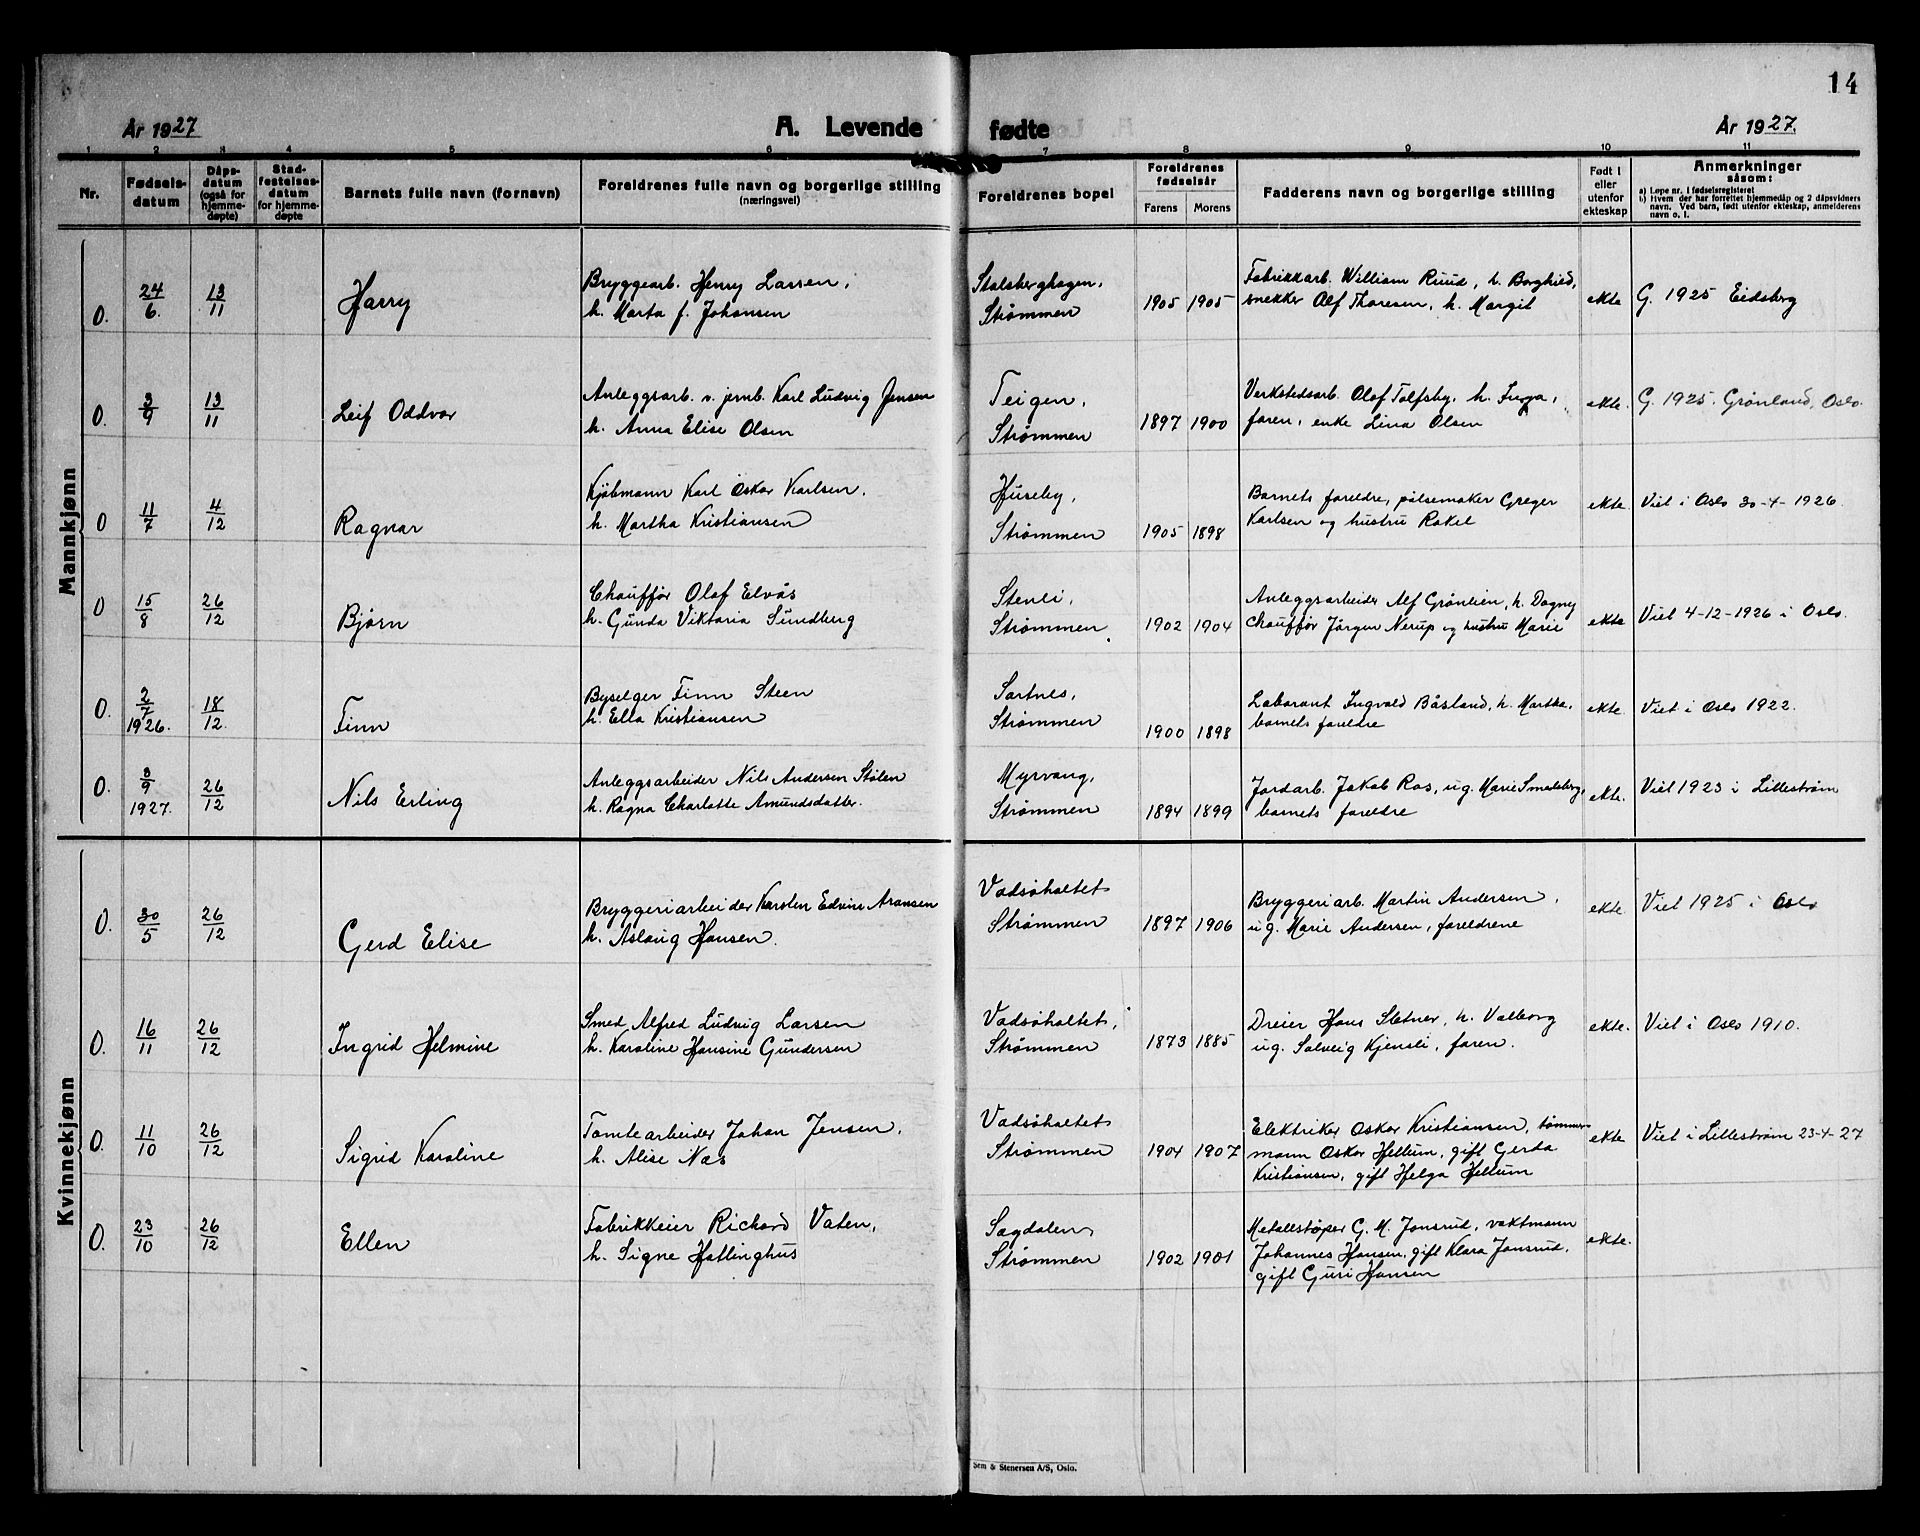 14
År 1927
A. Levende
fødte
År 1927.
1 2 3 4 5 6 7 8 9 10 11
Nr.
Fødsels-
datum
Dåps-
datum
(også for
hjemme-
døpte)
Stad-
festelses-
datum
for hjemme-
døpte
Barnets fulle navn (fornavn)
Foreldrenes fulle navn og borgerlige stilling
(næringsvei)
Foreldrenes bopel
Foreldrenes
fødselsår
Farens Morens
Fadderens navn og borgerlige stilling
Født i
eller
utenfor
ekteskap
Anmerkninger
såsom:
a) Løpe nr. i fødselsregisteret
b) Hvem der har forrettet hjemmedåp og 2 dåpsvidners
navn. Ved barn, født utenfor ekteskap, anmelderens
navn o. l.
Mannkjønn
0. 24/6. 13/11 Harry
Bryggearb. Henry Larsen,
h. Marta f. Johansen
Stalsberghagen,
Strømmen
1905 1905
Fabrikkarb. William Ruud, h. Borghild,
snekker Alf Thoresen, h. Margit
ekte G. 1925 Eidsberg
0. 3/9 13/11 Leif Oddvar
Anleggsarb. v. jernb. Karl Ludvig Jensen
h. Anna Elise Olsen
Teigen,
Strømmen
1897 1900
Verkstedsarb. Olaf Tolfsby, h. Inga,
faren, enke Lina Olsen
ekte. G. 1925. Grønland, Oslo.
0 11/7 4/12 Ragnar
Kjøbmann Karl Oskar Karlsen,
h. Martha Kristiansen
Huseby,
Strømmen
1905 1898
Barnets foreldre, pølsemaker Greger
Karlsen og hustru Rakel
ekte Viet i Oslo 30-4-1926.
0 15/8 26/12 Bjørn
Chauffør Olaf Elvås
h. Gunda Viktoria Sundberg
Stenli,
Strømmen
1902 1904
Anleggsarbeider Alf Grønlien, h. Dagny
Chauffør Jørgen Nerup og hustru Marie
ekte Viet 4-12-1926 i Oslo.
0. 2/7 1926. 18/12. Finn
Byselger Finn Steen
h. Ella Kristiansen
Sørtnes,
Strømmen
1900 1898
Laborant Ingvald Båsland, h. Martha,
barnets foreldre
ekte. Viet i Oslo 1922.
0. 3/9 1927. 26/12 Nils Erling
Anleggsarbeider Nils Andersen Stølen
h. Ragna Charlotte Amundsdatter.
Myrvang,
Strømmen
1894 1899
Jordarb. Jakob Ros, ug. Marie Smedsberg,
barnets foreldre
ekte. Viet 1923 i Lillestrøm
Kvinnekjønn
0. 30/5 26/12 Gerd Elise
Bryggeriarbeider Karsten Edvin Aronsen
h. Aslaug Hansen.
Vadsøholtet
Strømmen
1897 1906
Bryggeriarb. Martin Andersen,
ug. Marie Andersen, foreldrene
ekte. Viet 1925 i Oslo
0. 16/11 26/12 Ingrid Helmine
Smed Alfred Ludvig Larsen
h. Karoline Hansine Gundersen
Vadsøholtet,
Strømmen
1873 1885
Dreier Hans Sletner, h. Valborg
ug. Solveig Kjensli, faren.
ekte. Viet i Oslo 1910.
0. 11/10 26/12 Sigrid Karoline
Tomtearbeider Johan Jensen,
h. Alise Næs
Vadsøholtet
Strømmen
1904 1907
Elektriker Oskar Kristiansen, tømmer-
mann Oskar Hellum, gift Gerda
Kristiansen, gift Helga Hellum
ekte Viet i Lillestrøm 23-4-27
0. 23/10 26/12 Ellen
Fabrikkeier Richard Vaten,
h. Signe Hallinghus
Sagdalen
Strømmen
1902 1901
Metallstøper G. M. Jonsrud, vaktmann
Johannes Hansen, gift Klara Jonsrud,
gift Guri Hansen
ekte.
Sem & Stenersen A/S, Oslo.